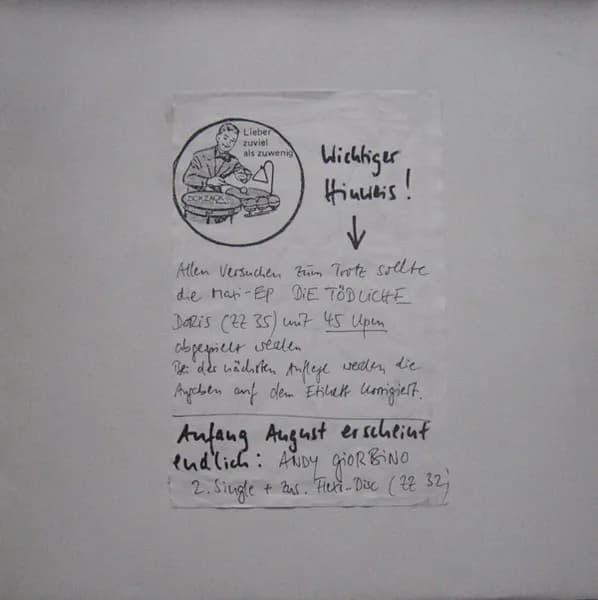 Lieber
zuviel
als zuwenig
ZICKZACK
Wichtiger
Hinweis!
Allen Versuchen zum Trotz sollte
die Maxi-EP DIE TÖDLICHE
DORIS (ZZ 35) mit 45 Upm
abgespielt werden
Bei der nächsten Auflage werden die
Angaben auf dem Etikett korrigiert.
Anfang August erscheint
endlich: ANDY GIORBINO
2. Single + zus. Flexi-Disc (ZZ 32)